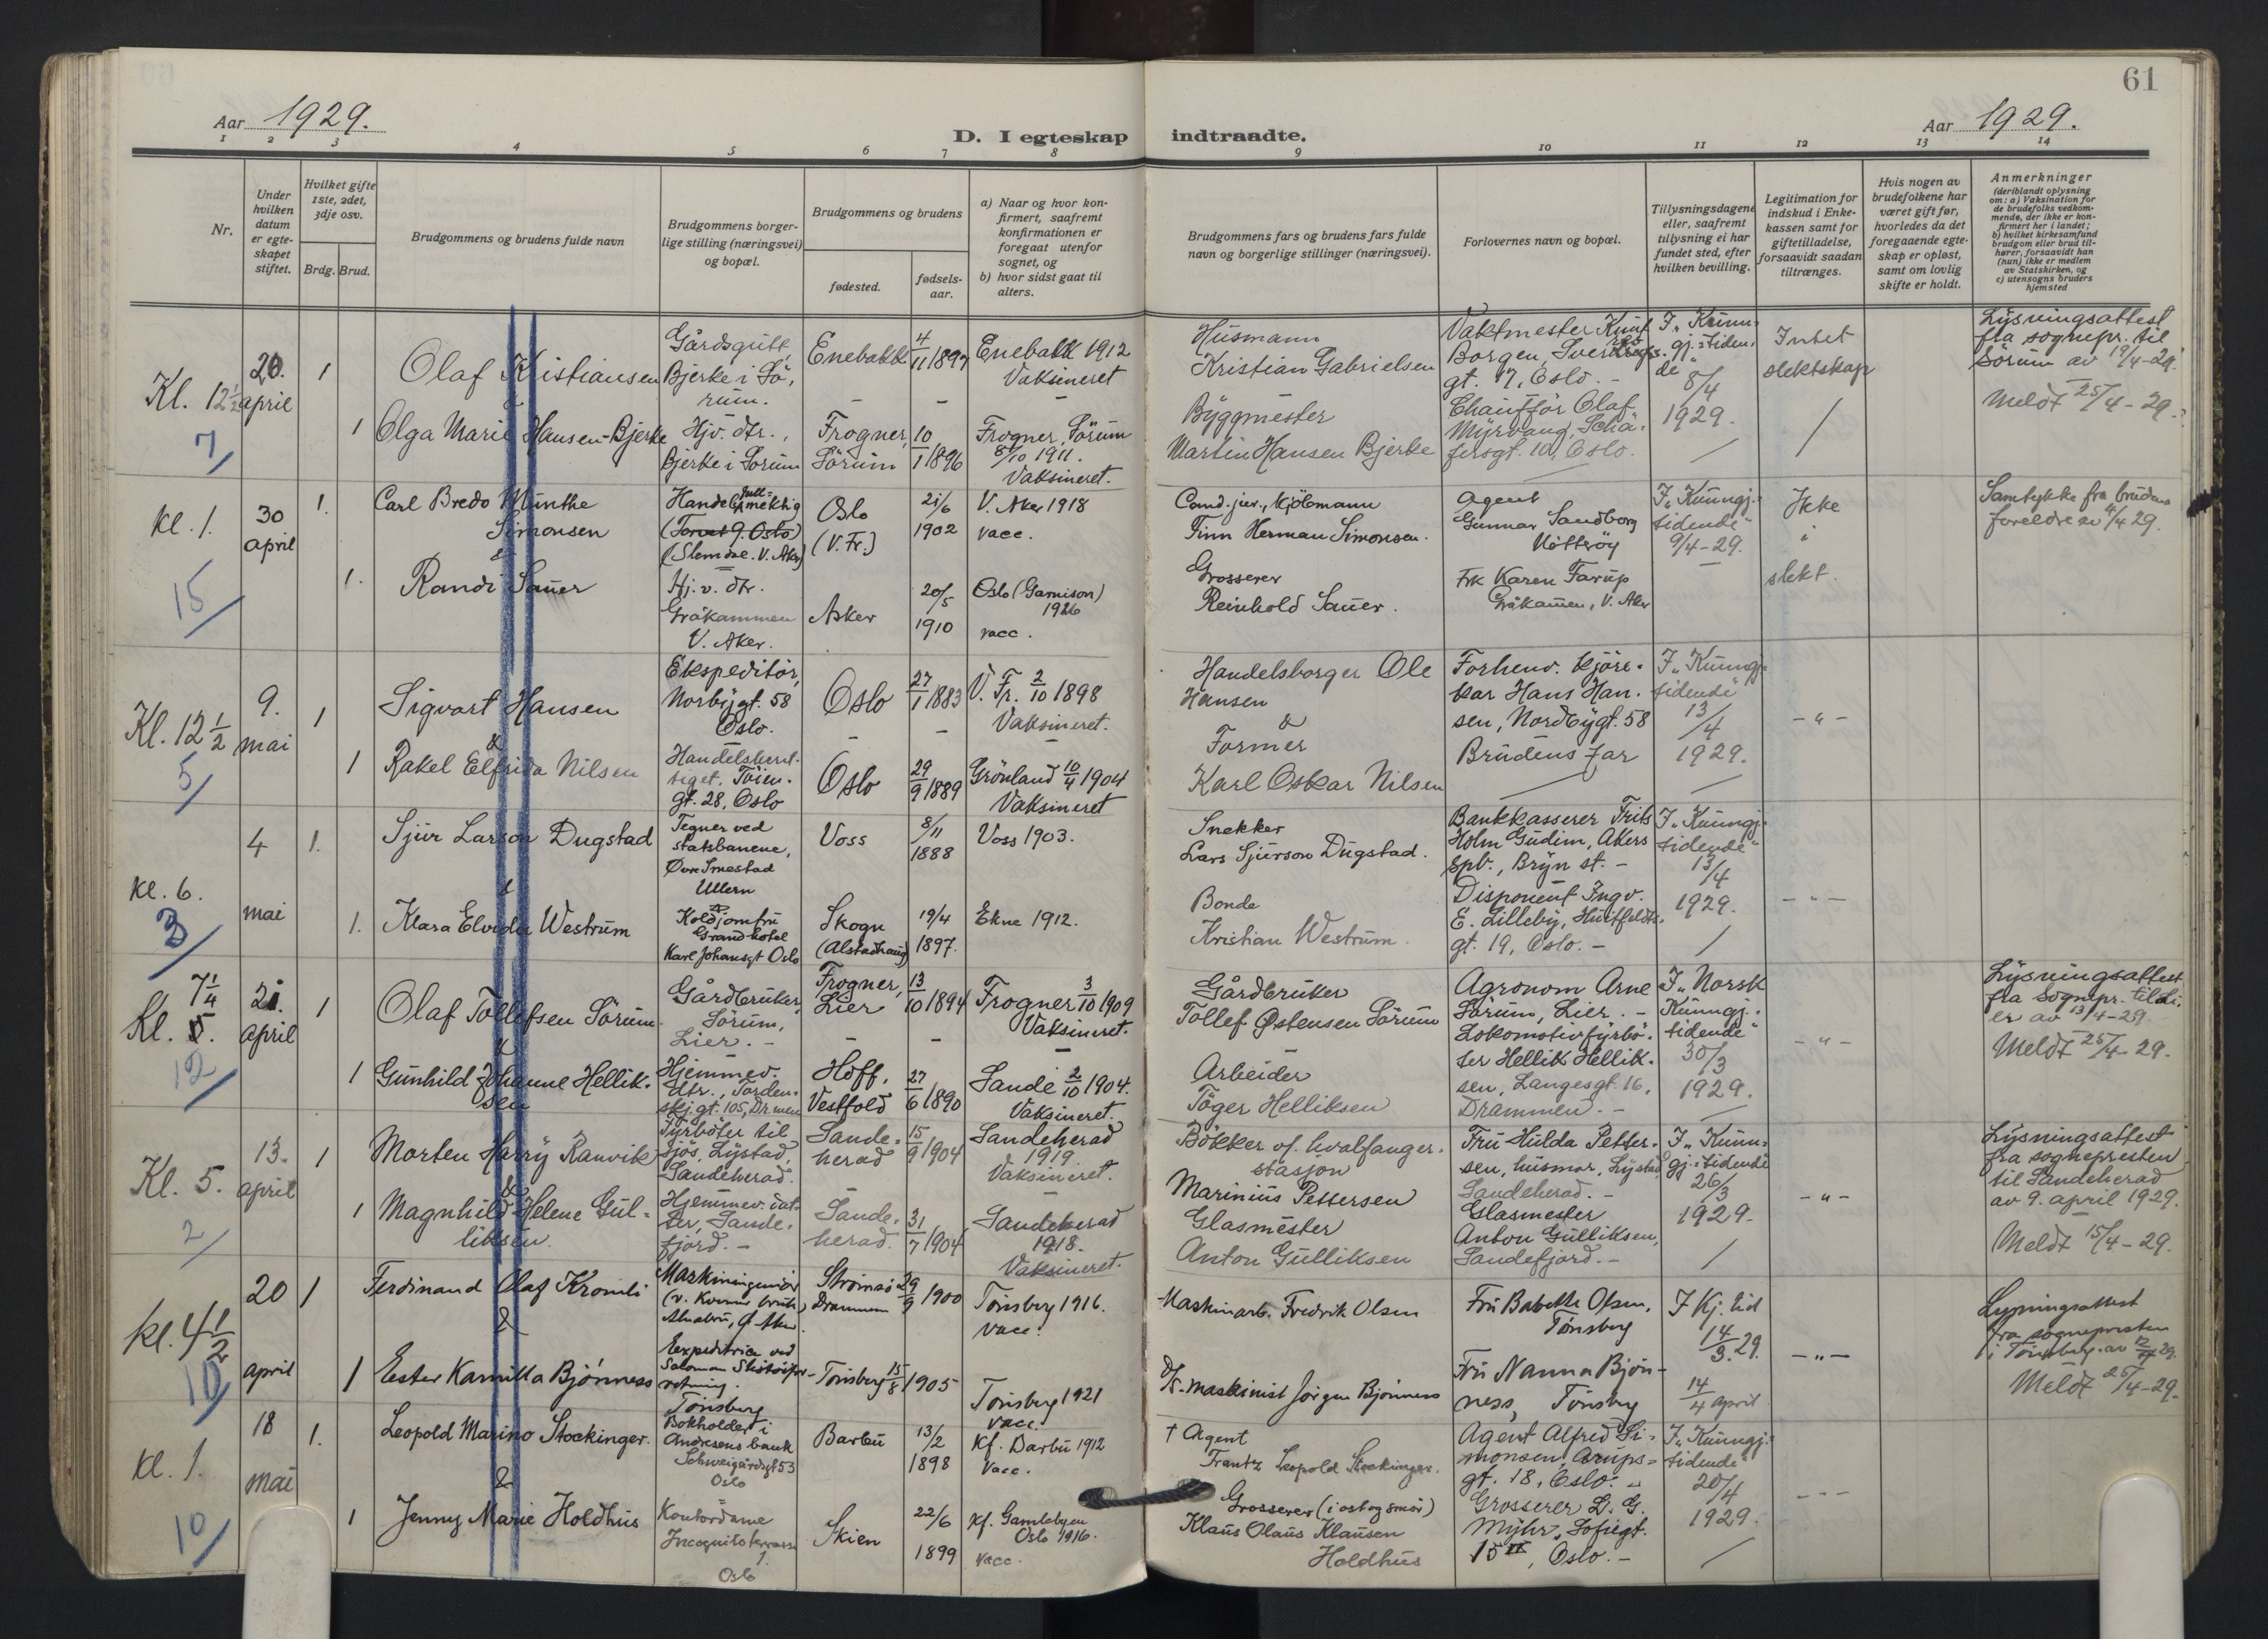 61
Aar 1929.
D. I egteskap indtraadte.
Aar 1929.
1 2 3 4 5 6 7 8 9 10 11 12 13 14
Nr.
Under hvilken datum er egteskapet stiftet.
Hvilket gifte 1ste, 2det, 3dje osv.
Brdg. Brud.
Brudgommens og brudens fulde navn
Brudgommens borgerlige stilling (næringsvei) og bopæl.
Brudgommens og brudens
fødested.
fødselsaar.
a) Naar og hvor konfirmert, saafremt konfirmationen er foregaat utenfor sognet, og
b) hvor sidst gaat til alters.
Brudgommens fars og brudens fars fulde navn og borgerlige stillinger (næringsvei).
Forlovernes navn og bopæl.
Tillysningsdagene eller, saafremt tillysning ei har fundet sted, efter hvilken bevilling.
Legitimation for indskud i Enkekassen samt for giftetilladelse, forsaavidt saadan tiltrænges.
Hvis nogen av brudefolkene har været gift før, hvorledes da det foregaaende egteskap er opløst, samt om lovlig skifte er holdt.
Anmerkninger
(deriblandt oplysning om: a) Vaksination for de brudefolks vedkommende, der ikke er konfirmert her i landet; b) hvilket kirkesamfund brudgom eller brud tilhører, forsaavidt han (hun) ikke er medlem av Statskirken, og c) utensogns bruders hjemsted
Kl. 12 1/2
7/
20. april
1
Olaf Kristiansen
&
1
Olga Marie Hansen-Bjerke
Gårdsgutt,
Bjerke i Sö,
rum.
Hjv. dtr.,
Bjerke i Sorum
Enebakk
4/11 1897
Enebakk 1912
Vaksineret
Frogner,
Sörum
10/1 1896
Frogner, Sörum
8/10 1911.
Vaksineret.
Husmann
Kristian Gabrielsen
Byggmester
Martin Hansen Bjerke
Vaktmester Knut
Borgen, Sverdrups.
gt. 17, Oslo. -
Chauffør Olaf
Myrvang, Schä-
fersgt. 10, Oslo.
I „Kunn-
gj.: tiden-
de"
8/4
1929.
Intet
slektskap
Lysningsattest
fra sognepr. til
Sörum av 19/4-29.
Meldt 25/4-29.
kl. 1.
15/
30 april
1.
Carl Bredo Munthe
Simonsen
&
1.
Randi Sauer
Handelsfullmektig
(Torvet 9. Oslo)
(Slemdal. V. Aker)
Hj.v. dtr.
Gråkammen
V. Aker.
Oslo
(V. Fr.)
21/6
1902
V. Aker 1918
vacc.
Asker
20/5
1910
Oslo (Garnison)
1926
vacc.
Cand. jur., Kjöbmann
Finn Herman Simonsen.
Grosserer
Reinhold Sauer.
Agent
Gunnar Sandborg
Nötteröy
Frk Karen Farup
Gråkammen, V. Aker
I „Kunngj.
tidende"
9/4-29.
Ikke
i
slekt.
Samtykke fra brudens
foreldre av 4/4 29.
Kl. 12 1/2
5/
9. mai
1
Sigvart Hansen
&
1
Rakel Elfrida Nilsen
Ekspeditör,
Norbygt. 58
Oslo.
Handelsbest-
yget. Töien-
gt. 28, Oslo
Oslo
27/1 1883
V. Fr. 2/10 1898
Vaksineret.
Oslo
29/9 1889
Grönland 10/4 1904
Vaksineret
Handelsborger Ole
Hansen
&
Former
Karl Oskar Nilsen
Forhenv. kjöre-
kar Hans Han-
sen, Nordbygt. 58
Brudens far
I „Kunngj-
tidende"
13/4
1929.
- " -
kl. 6.
3/
4 mai
1.
Sjur Larson Dugstad
&
1.
Klara Elvida Westrum
Tegner ved
statsbanene,
Övre Smestad
Ullern
Koldjomfru
Grand hotel
Karl Johansgt Oslo
Voss
8/11
1888
Voss 1903.
Skogn
(Alstadhaug)
19/4
1897.
Ekne 1912.
Snekker
Lars Sjurson Dugstad.
Bonde
Kristian Westrum.
Bankkasserer Frits
Holm Gudim, Akers
spb., Bryn st. -
Disponent Ingv.
E. Lilleby, Huitfeldts-
gt. 19, Oslo. -
I „Kunngj-
tidende"
13/4
1929.
- " -
Kl. 7 1/4
12/
21. april
1
Olaf Tollefsen Sörum.
&
1
Gunhild Johanne Hellik-
sen
Gårdbruker
Sörum,
Lier. -
Hjemmev.
dtr., Torden-
skj.gt. 105, Drmen
Frogner,
Lier
13/10 1894
Frogner 3/10 1909
Vaksineret.
Hoff,
Vestfold
27/6 1890
Sande 2/10 1904.
Vaksineret.
Gårdbruker
Tollef Østensen Sörum
Arbeider
Töger Helliksen
Agronom Arne
Sörum, Lier. -
Lokomotivfyrbö-
ter Hellik Hellik-
sen, Langesgt. 16,
Drammen. -
I „Norsk
Kunngj.:
tidende"
30/3
1929.
- " -
Lysningsattest
fra Sognepr. til Li-
er av 13/4-29.
Meldt 25/4-29.
Kl. 5.
2/
13. april
1
Morten Harry Ranvik
&
1
Magnhild Helene Gul-
liksen.
Fyrböter til
sjös, Lystad,
Sandeherad.
Hjemmev. dat-
ter, Sande-
fjord. -
Sande-
herad
15/9 1904
Sandeherad
1919.
Vaksineret.
Sande-
herad.
31/7 1904
Sandeherad
1918.
Vaksineret.
Bökker v/ hvalfanger-
stasjon
Marinius Pettersen
Glasmester
Anton Gulliksen
Fru Hulda Petter-
sen, husmor, Lystad,
Sandeherad. -
Glasmester
Anton Gulliksen,
Sandefjord. -
I „Kunn-
gj.: tidende"
26/3
1929.
- " -
Lysningsattest
fra sognepresten
til Sandeherad
av 9. april 1929.
Meldt 15/4-29.
kl. 4 1/2
10/
20 april
1
Ferdinand Olaf Kromli
&
1
Ester Kamilla Bjönness
Maskiningeniör
(v. Kværner bruk)
Alnabru, Ö. Aker
Expeditrice ved
Salomon
Tönsberg
Strömsö
Drammen
29/9 1900
Tönsberg 1916.
vacc.
Tönsberg
15/8 1905
Tönsberg 1921
vacc.
Maskinarb. Fredrik Olsen
D/S. maskinist Jörgen Bjönness
Fru Babette Olsen,
Tönsberg
Fru Nanna Bjön-
ness, Tönsberg
I Kj. tid
14/3. 29.
14/4 april
- " -
Lysningsattest
fra sognepresten
i Tönsberg av 12/4 29.
Meldt 25/4-29.
kl. 1.
10/
18 mai
1.
Leopold Marino Stockinger.
&
1
Jenny Marie Holdhus
Bokholder i
Andresens bank
Schweigårdsgt 53
Oslo
Kontordame
Incognito terrasse
1.
Oslo
Barbu
13/2
1898
Kf. Barbu 1912
Vacc.
Skien
22/6
1899
Kf. Gamlebyen
Oslo 1916.
vacc.
† Agent
Frantz Leopold Stockinger.
Grosserer (i ost og smör)
Klaus Olaus Klausen
Holdhus
Agent Alfred Si-
monsen, Arups-
gt. 18, Oslo. -
Grosserer L. G.
Myhr, Sofiegt.
15 IV, Oslo. -
I „Kunngj.:
tidende"
20/4
1929.
- - -